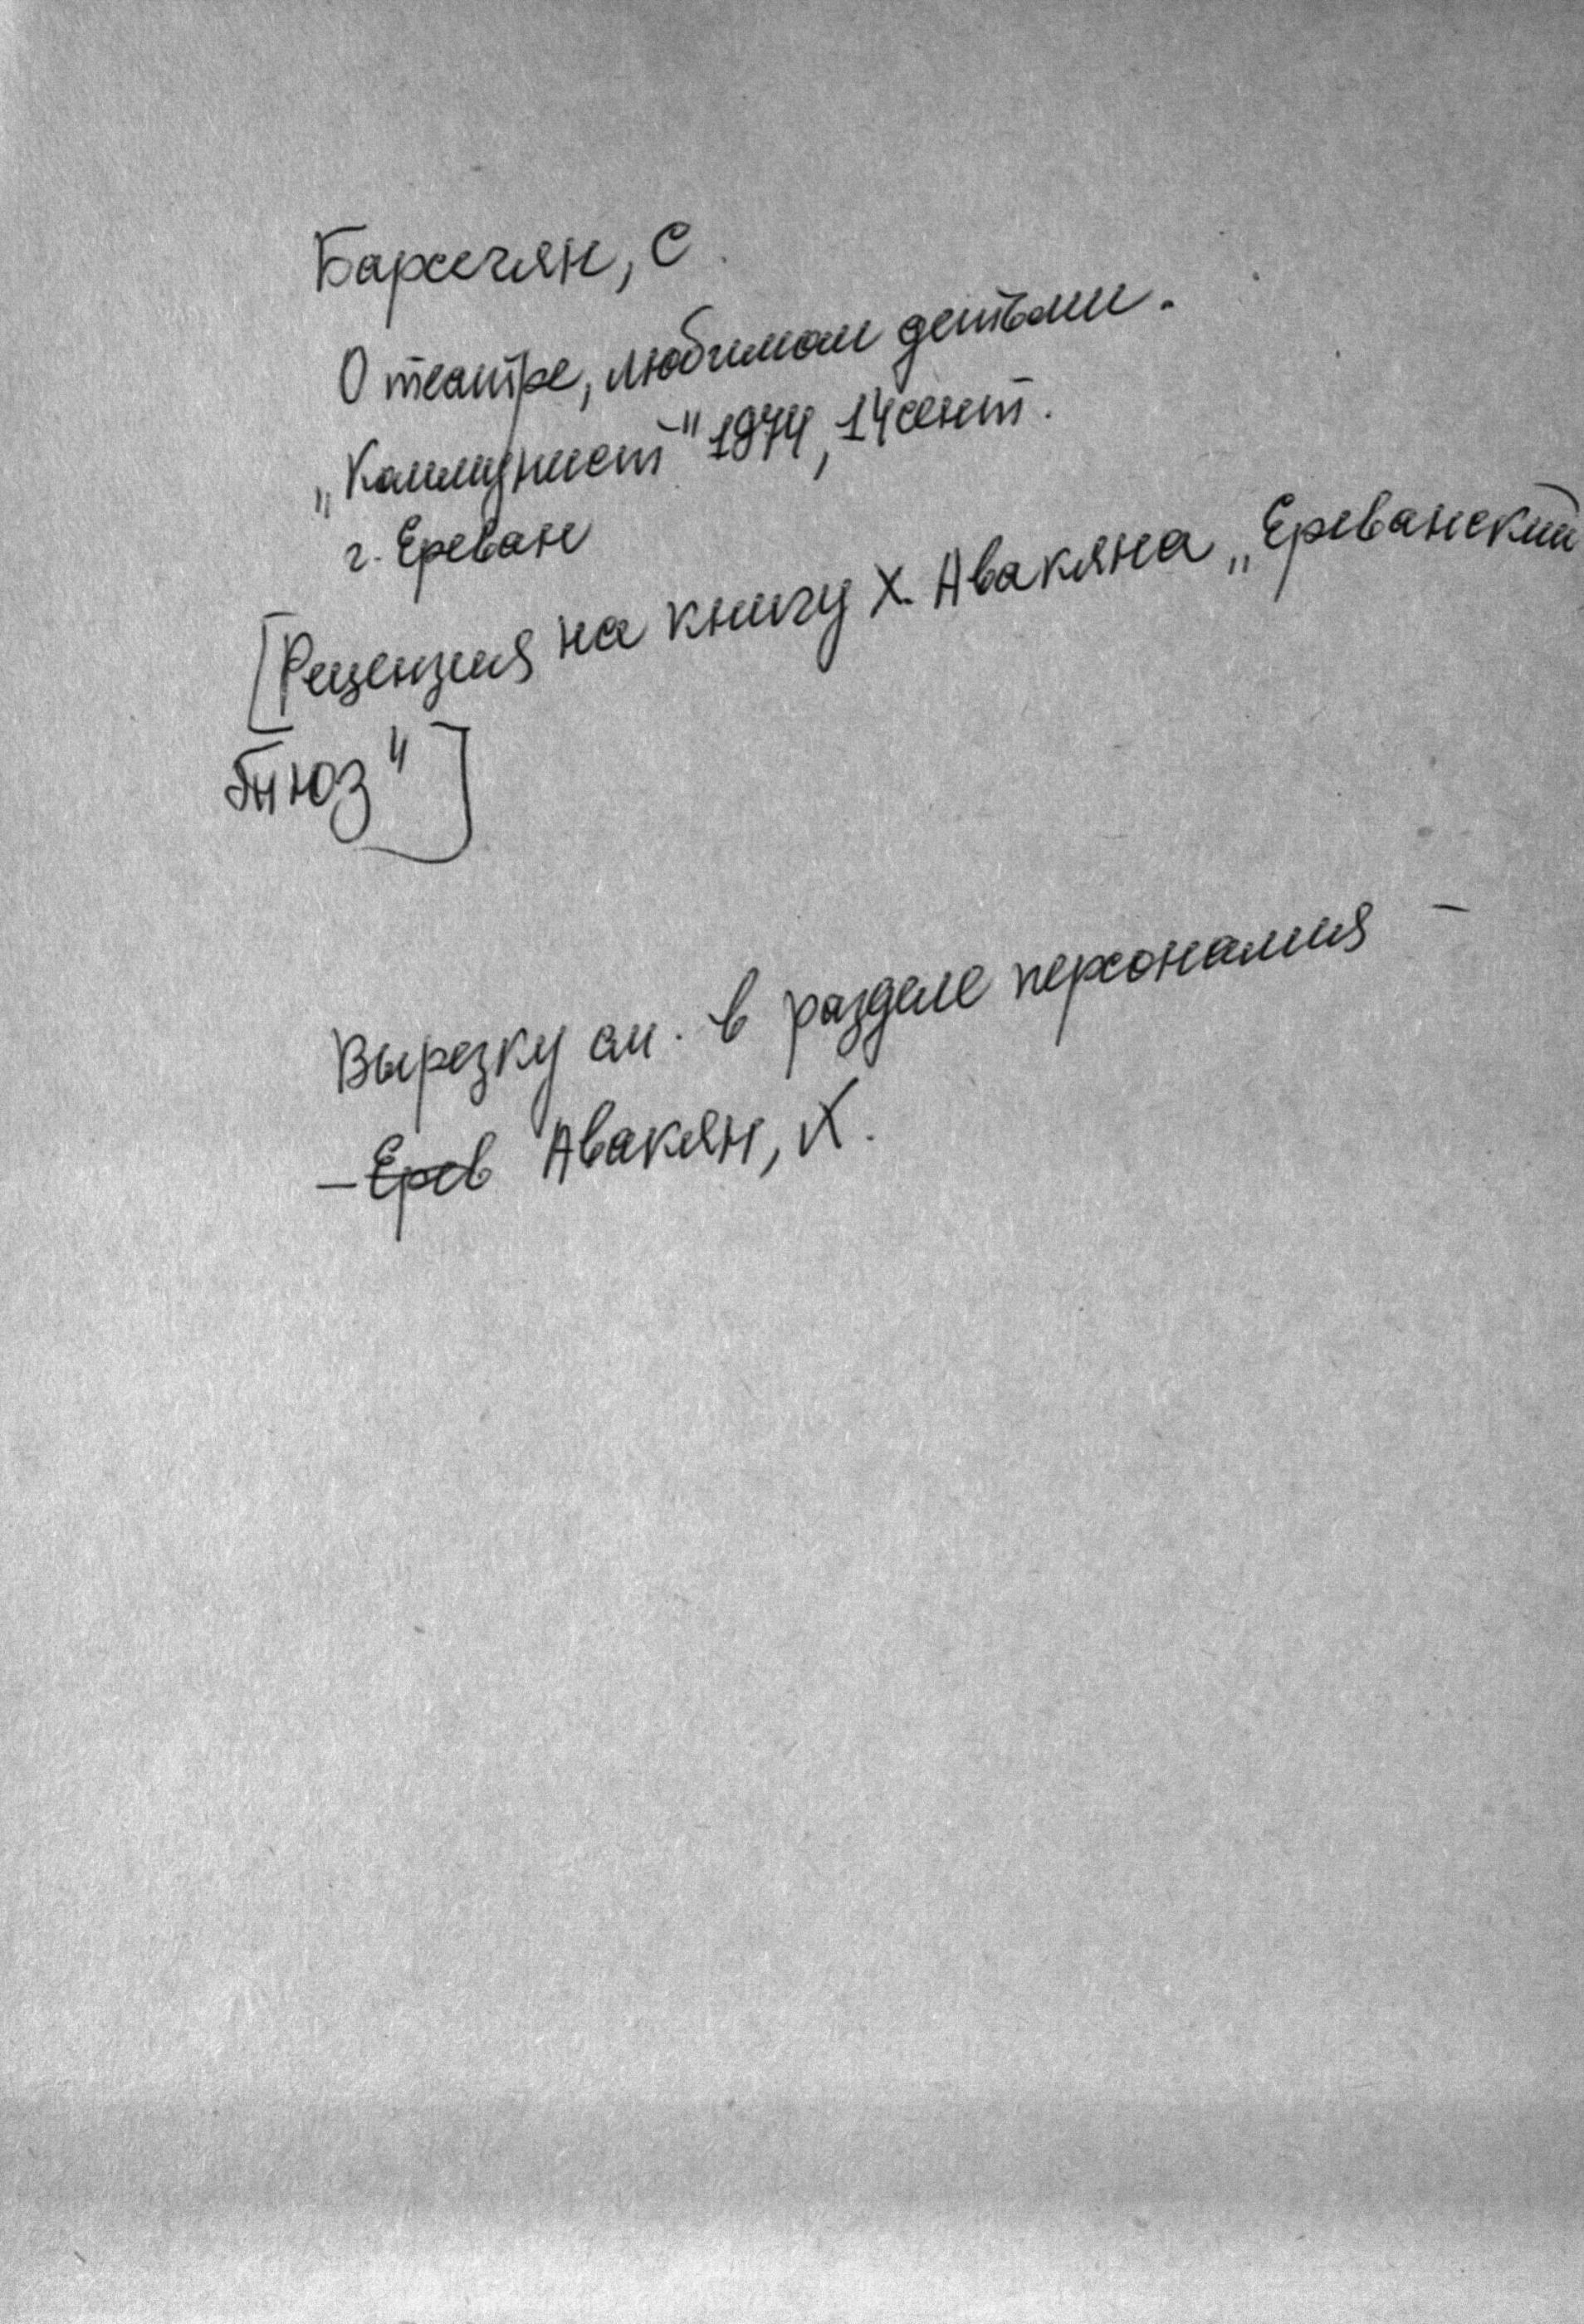 Барсегян, С.
О театре, любимом детьми.
„Коммунист" 1974, 14 сент.
г. Ереван
[Рецензия на книгу Х. Авакяна „Ереванский
ТЮЗ"]
Вырезку см. в разделе персоналия –
– Ерев Авакян, Х.